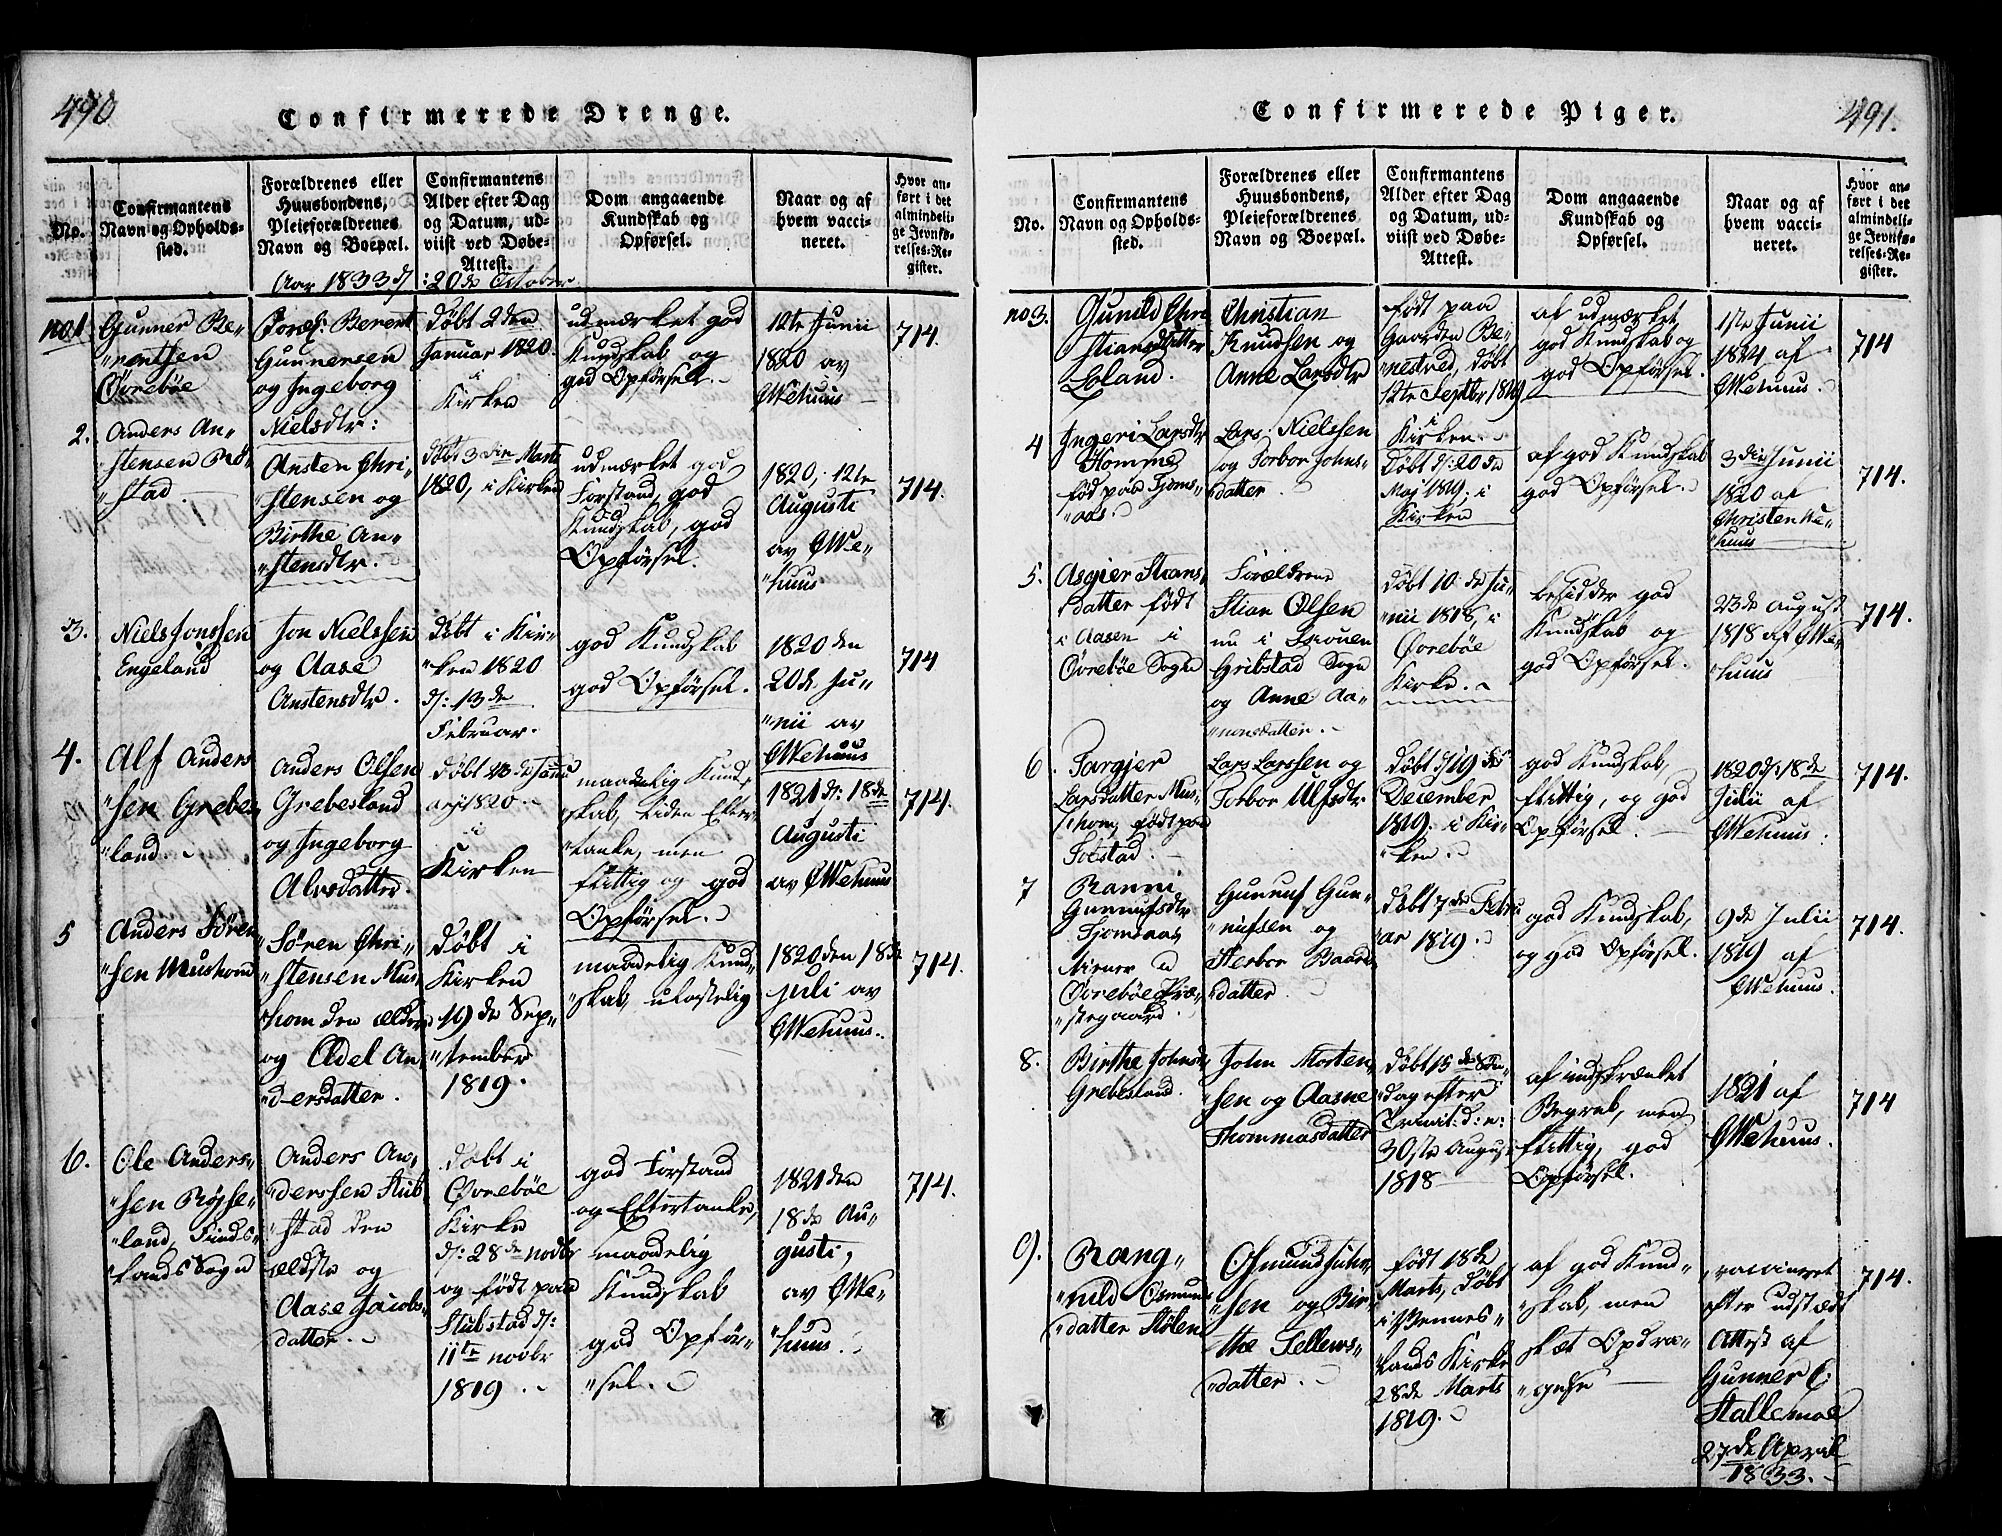 490
Confirmerede Drenge.
No.
Confirmantens
Navn og Opholds-
sted.
Forældrenes eller
Huusbondens,
Pleieforældrenes
Navn og Boepæl.
Confirmantens
Alder efter Dag
og Datum, ud-
viist ved Døbe-
Attest.
Dom angaaende
Kundskab og
Opførsel.
Naar og af
hvem vacci-
neret.
Hvor an-
ført i det
almindeli-
ge Jevnfø-
relses-Re-
gister.
Aar 1833 d/: 20de October
no 1
Gunner Be-
"rentsen
Øvrebøe
Foræl: Berent
Gunnersen
og Ingeborg
Nielsdtr:
Døbt 2den
Januar 1820.
i
Kirken
udmærket god
Kundskab og
god Opførsel.
12te Junii
1820 av
OWehuus
714
2.
Anders An-
"stensen Rø-
"stad.
Ansten Chri-
stensen og
Birthe An-
"stensdtr.
døbt 3die Marts
1820, i Kirken
udmærket god
Forstand, god
Kundskab, god
Opførsel.
1820, 12te
Augusti
av OWe-
"huus
714.
3.
Niels Jonssen
Engeland
Jon Nielssen
og Aase
Anstensdtr.
døbt i Kir-
"ken 1820
d/: 13de
Februar.
god Kundskab
god Opførsel.
1820 den
20de Ju-
"nii av
OWehuus
714
4.
Alf Anders
"sen Grebes-
land.
Anders Olsen
Grebesland
og Ingeborg
Alvsdatter.
Døbt 23de Janu
arii 1820.
i
Kirken
maadelig Kund-
skab, liden Efter-
tanke, men
flittig og god
Opførsel.
1821 d/: 18de
Augusti
av OWehuus
714.
5
Anders Søren-
"sen Mushom
Søren Chri-
"stensen Mus-
"hom den ældre
og Adel An-
"dersdatter.
Døbt i
Kirken
19de Sep-
"tember
1819.
maadelig Kund-
"skab, ulastelig
1820 den 18de
juli av
OWehuus.
714.
6.
Ole Anders-
"sen Røyse-
"land, Finds-
"lands Sogn
Anders An-
"derssen Stub-
"stad den
ældste og
Aase Jacobs-
datter.
døbt i
Øvrebøe
Kirke
d/: 28de novbr
og født paa
Stubstad d/:
11te novbr
1819.
god Forstand
og Eftertanke,
maadelig
Kundskab
god Opfør-
"sel.
1821 den
18de Au-
gusti,
av OWe-
"huus.
714.
491.
Confirmerede Piger.
No.
Confirmantens
Navn og Opholds-
sted.
Forældrenes eller
Huusbondens,
Pleieforældrenes
Navn og Boepæl.
Confirmantens
Alder efter Dag
og Datum, ud-
viist ved Døbe-
Attest.
Dom angaaende
Kundskab og
Opførsel.
Naar og af
hvem vacci-
neret.
Hvor an-
ført i det
almindeli-
ge Jevnfø-
relses-Re-
gister.
no 3.
Gunild Chri
stiansdatter
Loland.
Christian
Knudsen og
Anne Larsdtr
født paa
Gaarden Be-
"nestved, døbt
12te Septbr 1819
i
Kirken.
af udmærket
god Kundskab og
god Opførsel.
1ste Junii
1824 af
OWehuus.
714
4
Ingeri Larsdtr
Homme
fød paa Tjoms-
"aas.
Lars Nielssen
og Torbor Johns-
"datter.
Døbt d/: 20de
Maj 1819, i
Kirken
af god Kundskab
god Opførsel.
3die Junii
1820 af
Christen We-
"huus
714.
5.
Asgier Stians-
datter født
i Aasen i
Øvrebøe Sogn
Forældrene
Stian Olsen
nu i
Gribstad Sogn
og Anne Aa-
"nensdatter.
døbt 10de Ju-
"nii 1818, i
Øvrebøe
Kirke.
besidder god
Kundskab og
god Opførsel.
23de August
1818 af OWe-
"huus
714.
6.
Targjer
Larsdatter Mus-
"hom, født paa
Toestad.
Lars Larssen og
Torbor Ulfsdtr
Døbt d/19de
December
1819. i Kir-
"ken.
god Kundskab,
flittig, og god
Opførsel.
1820 d/: 18de
Julii af
OWehuus.
714.
7
Ranni
Gunnufsdtr
Tjomsaas
tiener i
Øvrebøe Præ-
"stegaard.
Gunnuf Gun-
"nufsen og
Herbor Baards-
"datter.
døbt 7de Febru
ar 1819.
god Kundskab,
og god Opførsel.
9de Julii
1819 af
OWehuus.
714.
8.
Birthe Johnsd
Grebesland.
John Morten-
"sen og Aasne
Thommasdatter
Døbt 15de Søn-
"dag efter
Trinit: d: e:
30ste August
1818
af indskrænket
Begreb, men
flittig, god
Opførsel.
1821 af
OWehuus.
714
9).
Rang-
"nild Osmunds-
"datter Stølen
Osmund
"sen og Bir-
the Tellevs-
"datter.
født 18de
Marts, døbt
i Vennes-
"lands Kirke
28de Marts
1819.
af god Kund-
"skab, men
slæt Opdra-
"gelse
vaccineret
efter udstædt
Attest af
Gunner O
Stallemoe
27de April
1833.
714.